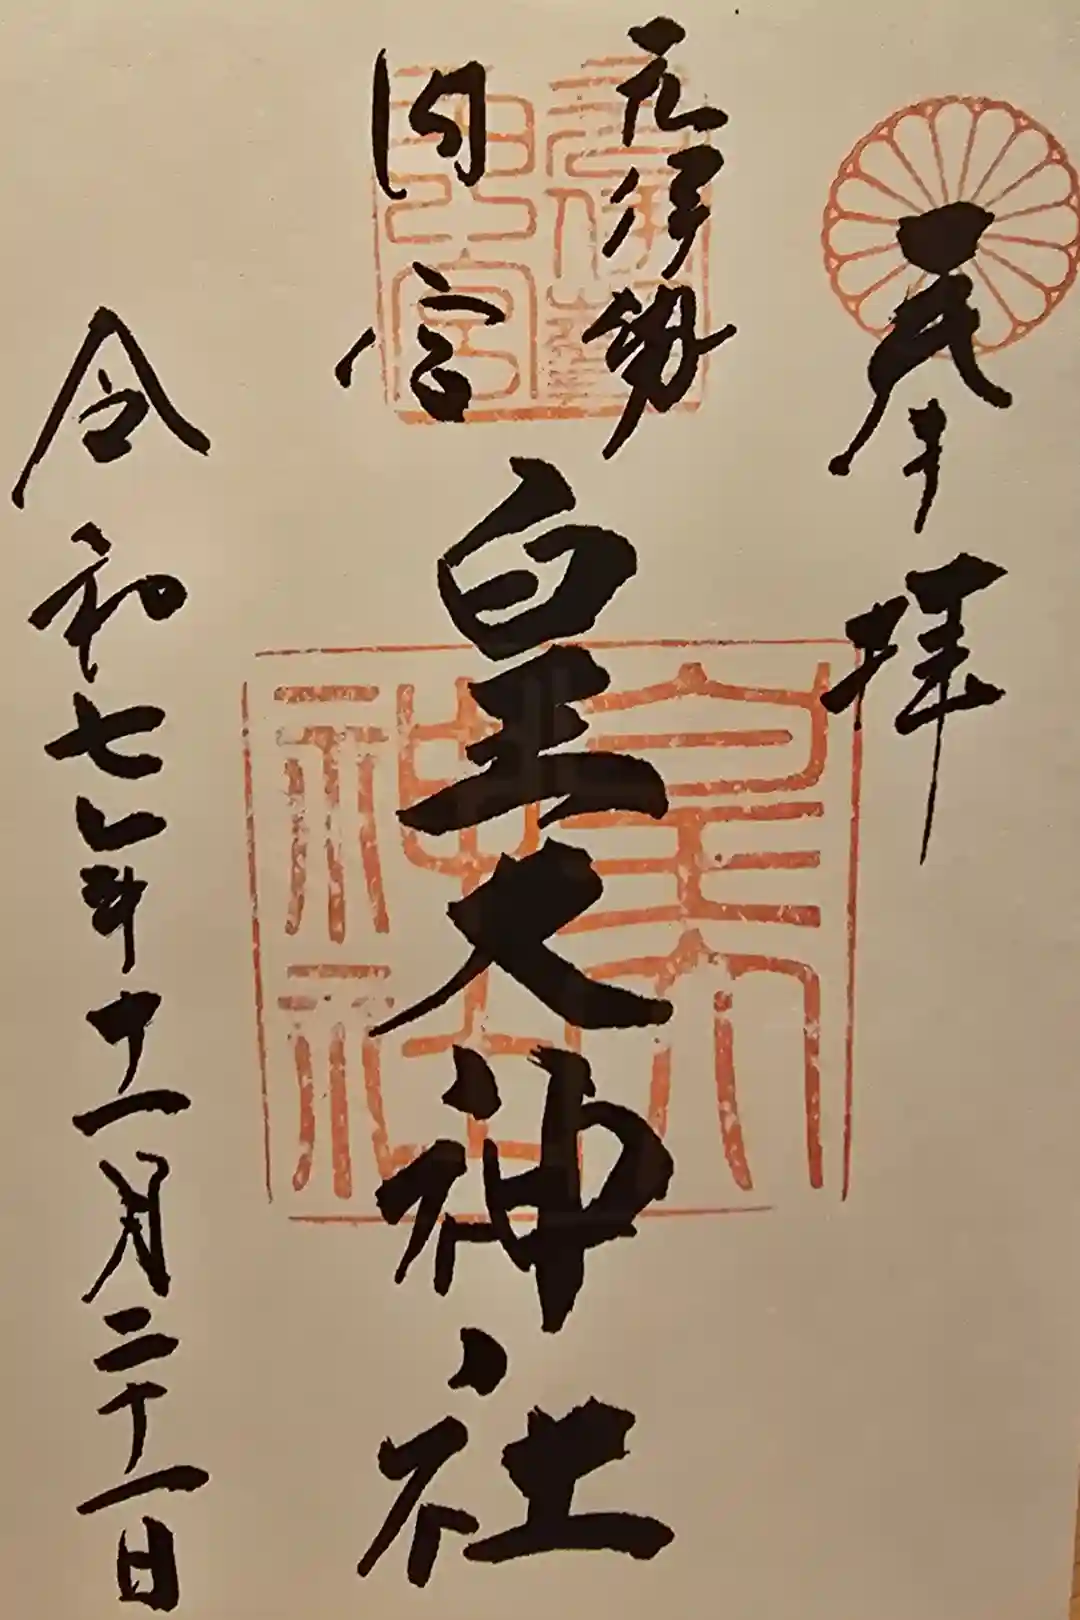 奉拝
元伊勢
内宮
皇大神社
皇大
神社
令和七年十一月二十一日